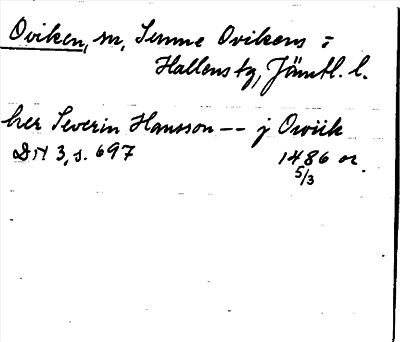 Oviken, sn, Semme Ovikens i
Hallens tg, Jämtl. l.
her Severin Hansson -- j Owiik
DN 3, s. 697 1486 or.
5/3